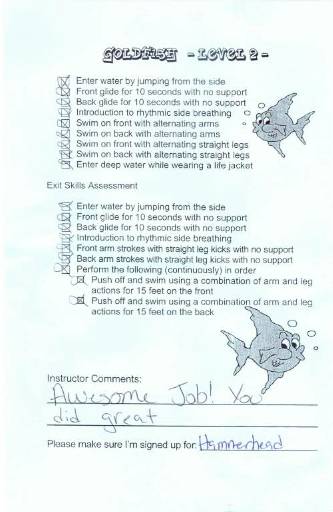 GOLDFISH - LEVEL 2 -
Enter water by jumping from the side
Front glide for 10 seconds with no support
Back glide for 10 seconds with no support
Introduction to rhythmic side breathing
Swim on front with alternating arms
Swim on back with alternating arms
Swim on front with alternating straight legs
Swim on back with alternating straight legs
Enter deep water while wearing a life jacket
Exit Skills Assessment
Enter water by jumping from the side
Front glide for 10 seconds with no support
Back glide for 10 seconds with no support
Introduction to rhythmic side breathing
Front arm strokes with straight leg kicks with no support
Back arm strokes with straight leg kicks with no support
Perform the following (continuously) in order
Push off and swim using a combination of arm and leg
actions for 15 feet on the front
Push off and swim using a combination of arm and leg
actions for 15 feet on the back
Instructor Comments:
Awesome Job! You
did great
Please make sure I'm signed up for: Hammerhead